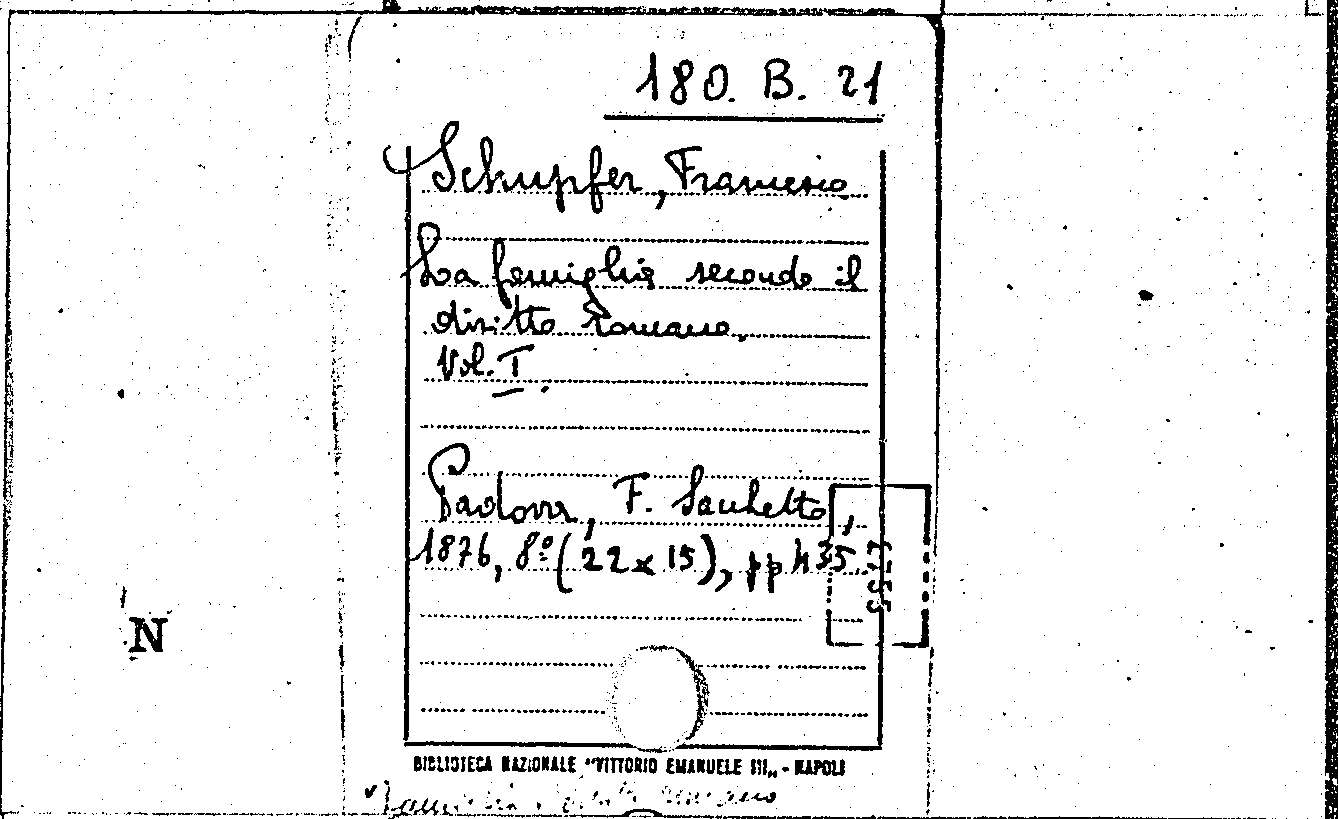 180. B. 21
Schupfer, Francesco
La famiglia secondo il
diritto romano.
Vol. I.
Padova, F. Sacchetto,
1876, 8º (22 x 15), pp 435.
N
BIBLIOTECA NAZIONALE "VITTORIO EMANUELE III„ - NAPOLI
romano